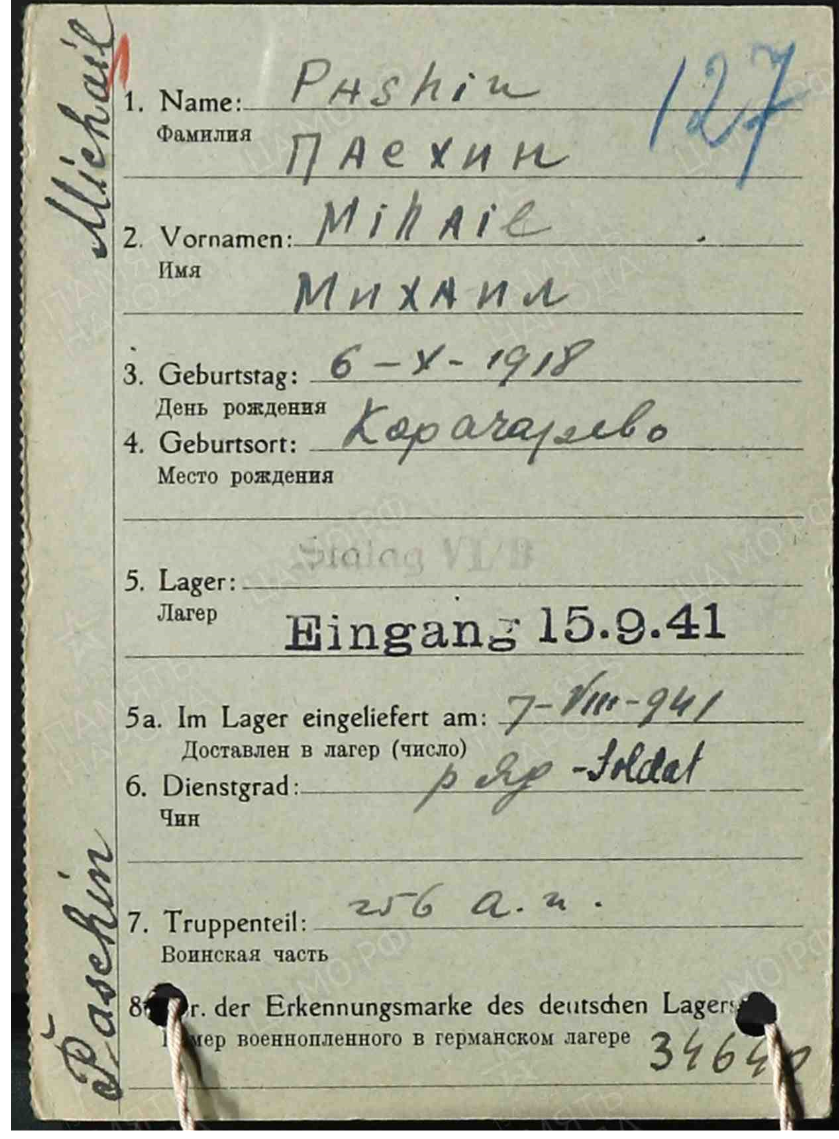 Michail
Paschin
127
1. Name: Pashin
Фамилия
Паехин
2. Vornamen: Mihail
Имя
Михаил
3. Geburtstag: 6-X-1918
День рождения
4. Geburtsort: Карачарево
Место рождения
Stalag VI/B
5. Lager:
Лагер
Eingang 15.9.41
5a. Im Lager eingeliefert am: 7-VIII-941
Доставлен в лагер (число)
6. Dienstgrad: ряд -Soldat
Чин
7. Truppenteil: 256 а.п.
Воинская часть
8. der Erkennungsmarke des deutschen Lagers
военнопленного в германском лагере
ПАМЯТЬ НАРОДА
ЦАМО РФ